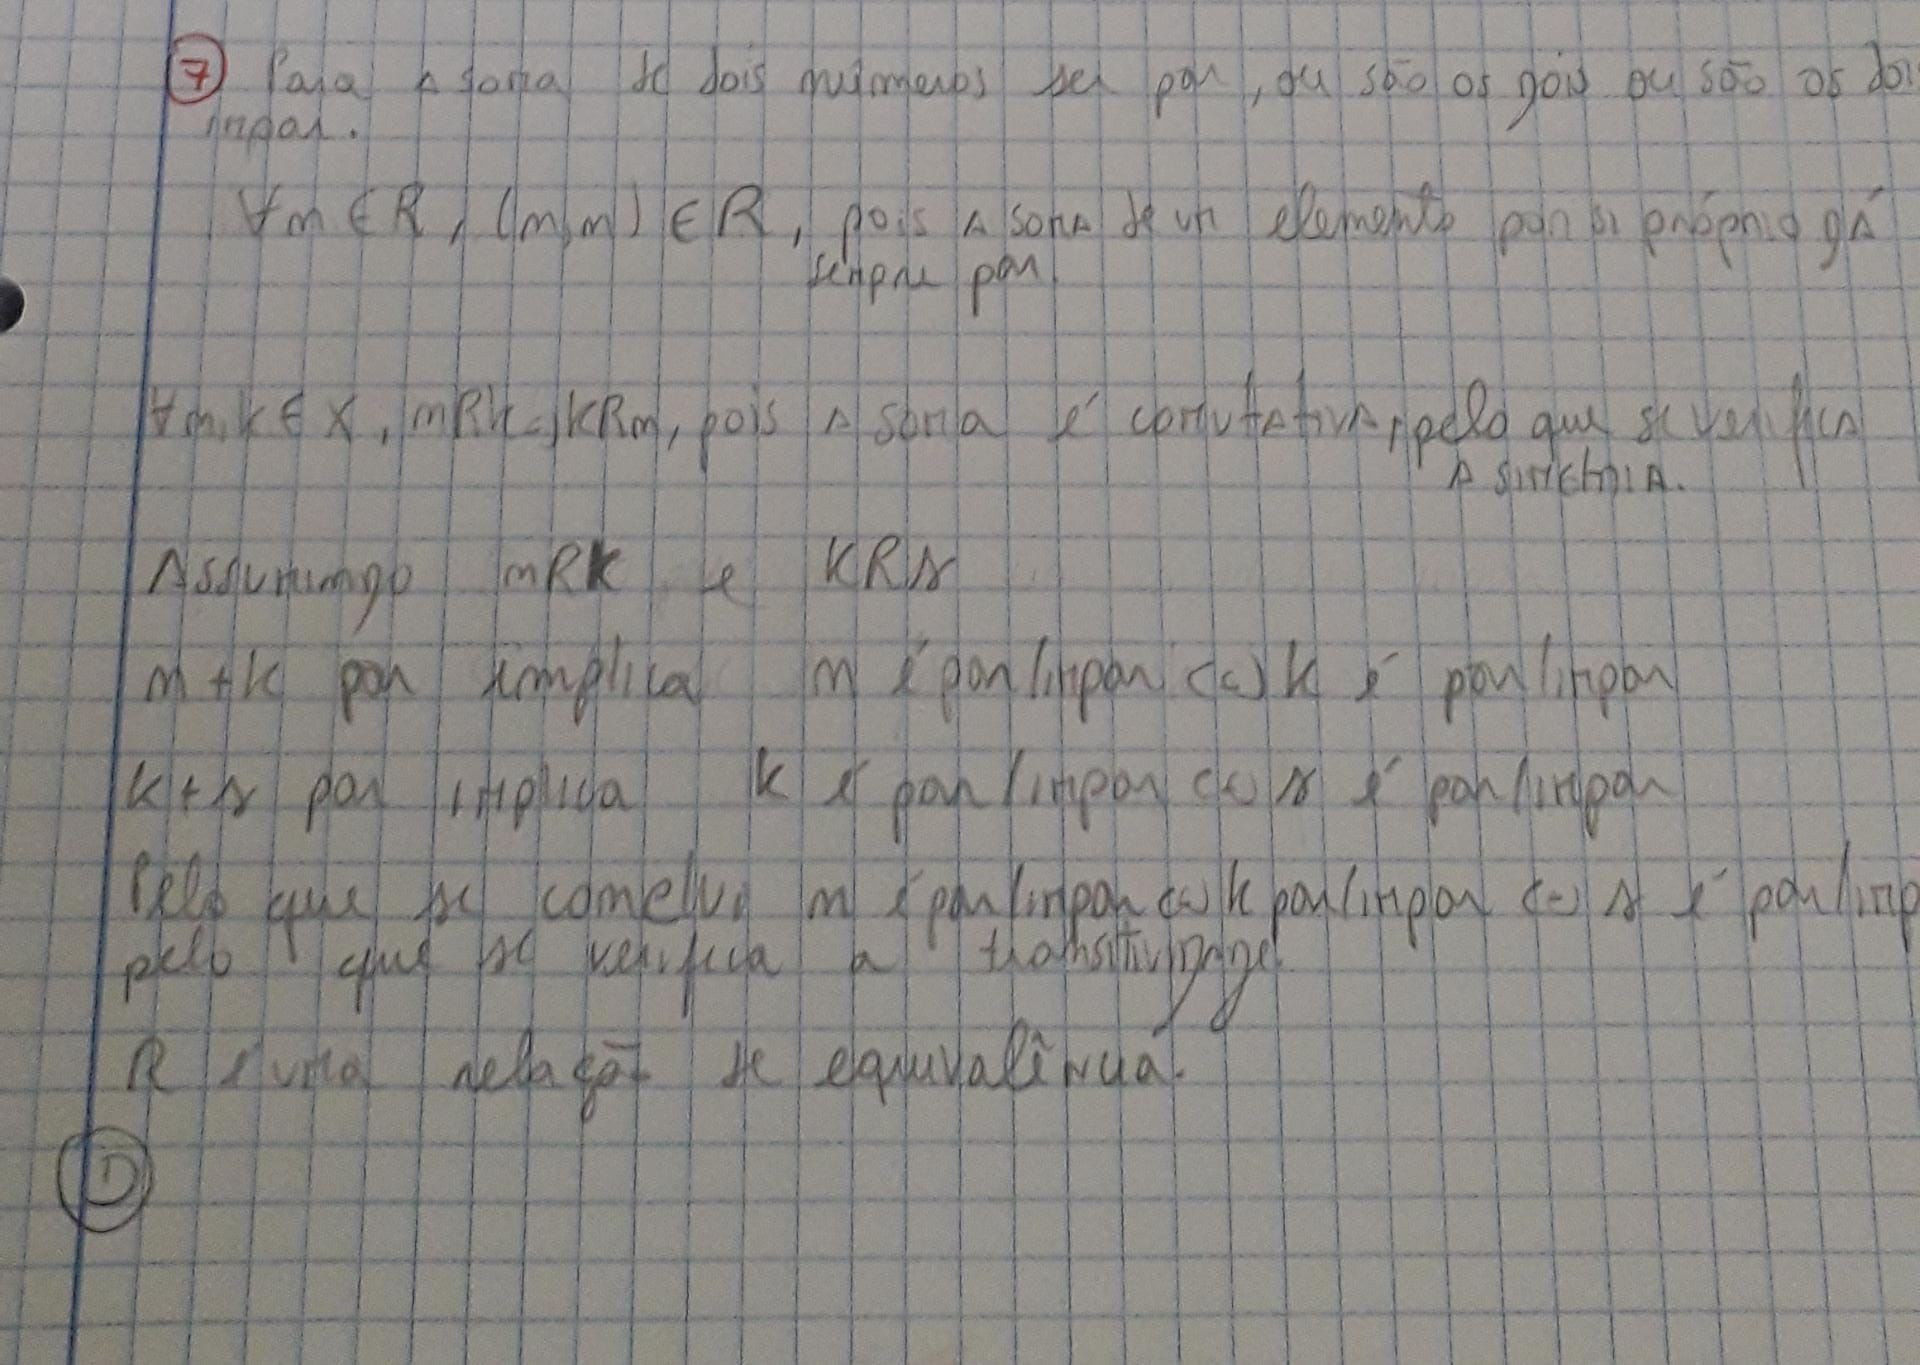 7 Para a soma de dois números ser par, ou são os dois ou são os dois
impar.
∀m ∈ R, (m,m) ∈ R, pois a soma de um elemento por si próprio dá
sempre par
∀m,k ∈ X, mRk => kRm, pois a soma é comutativa, pelo que se verifica
a simetria.
Assumindo mRk e kRs
m+k par implica m é par/impar <=> k é par/impar
k+s par implica k é par/impar <=> s é par/impar
Pelo que se conclui m é par/impar <=> k par/impar <=> s é par/imp
pelo que se verifica a transitividade.
R é uma relação de equivalência.
D